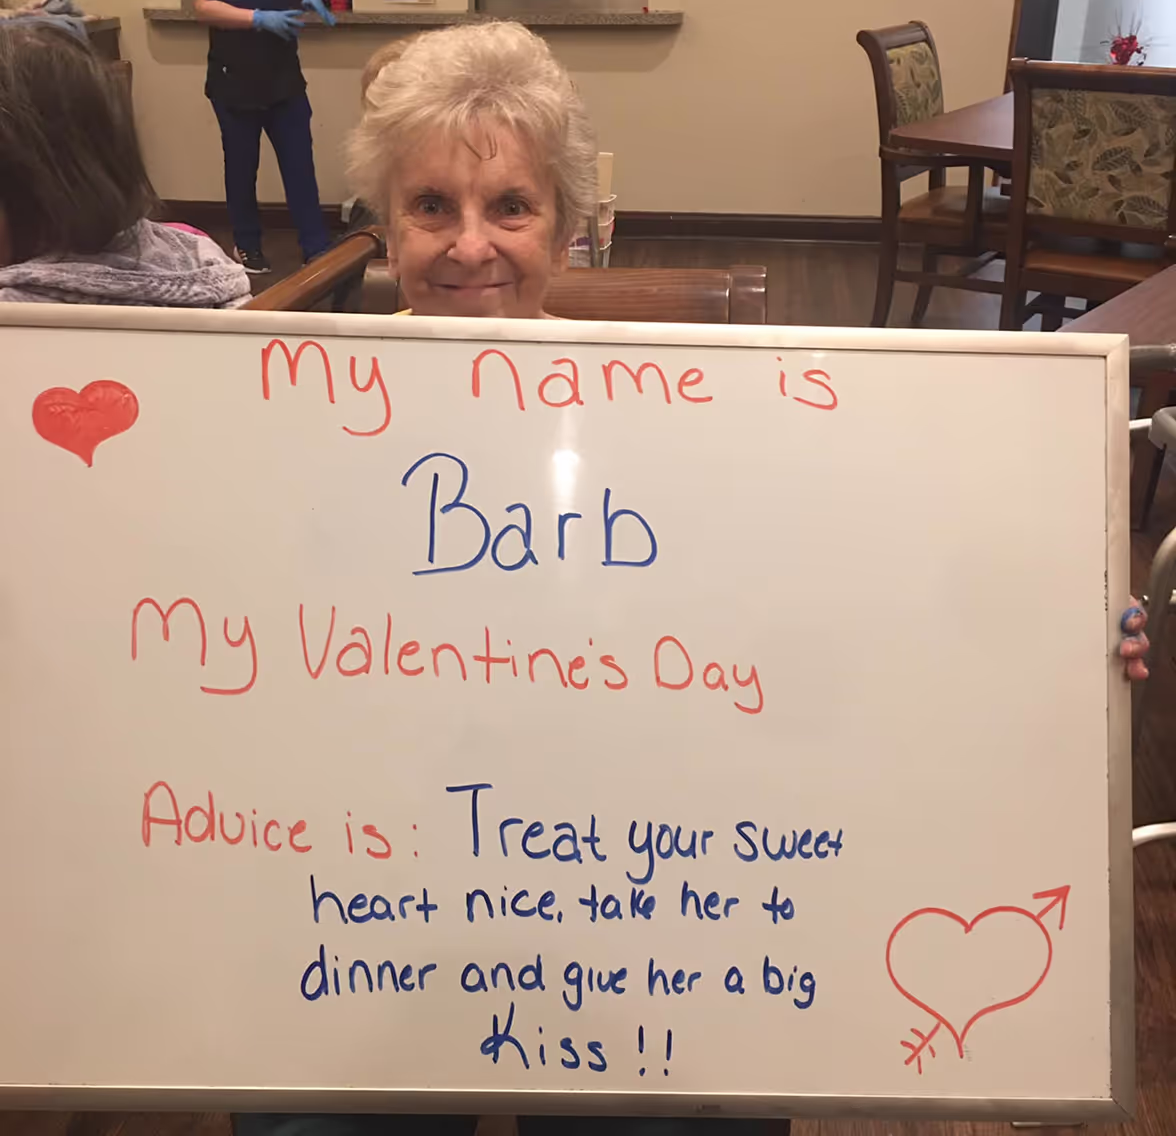 My name is
Barb
My Valentine's Day
Advice is: Treat your sweet
heart nice, take her to
dinner and give her a big
Kiss !!